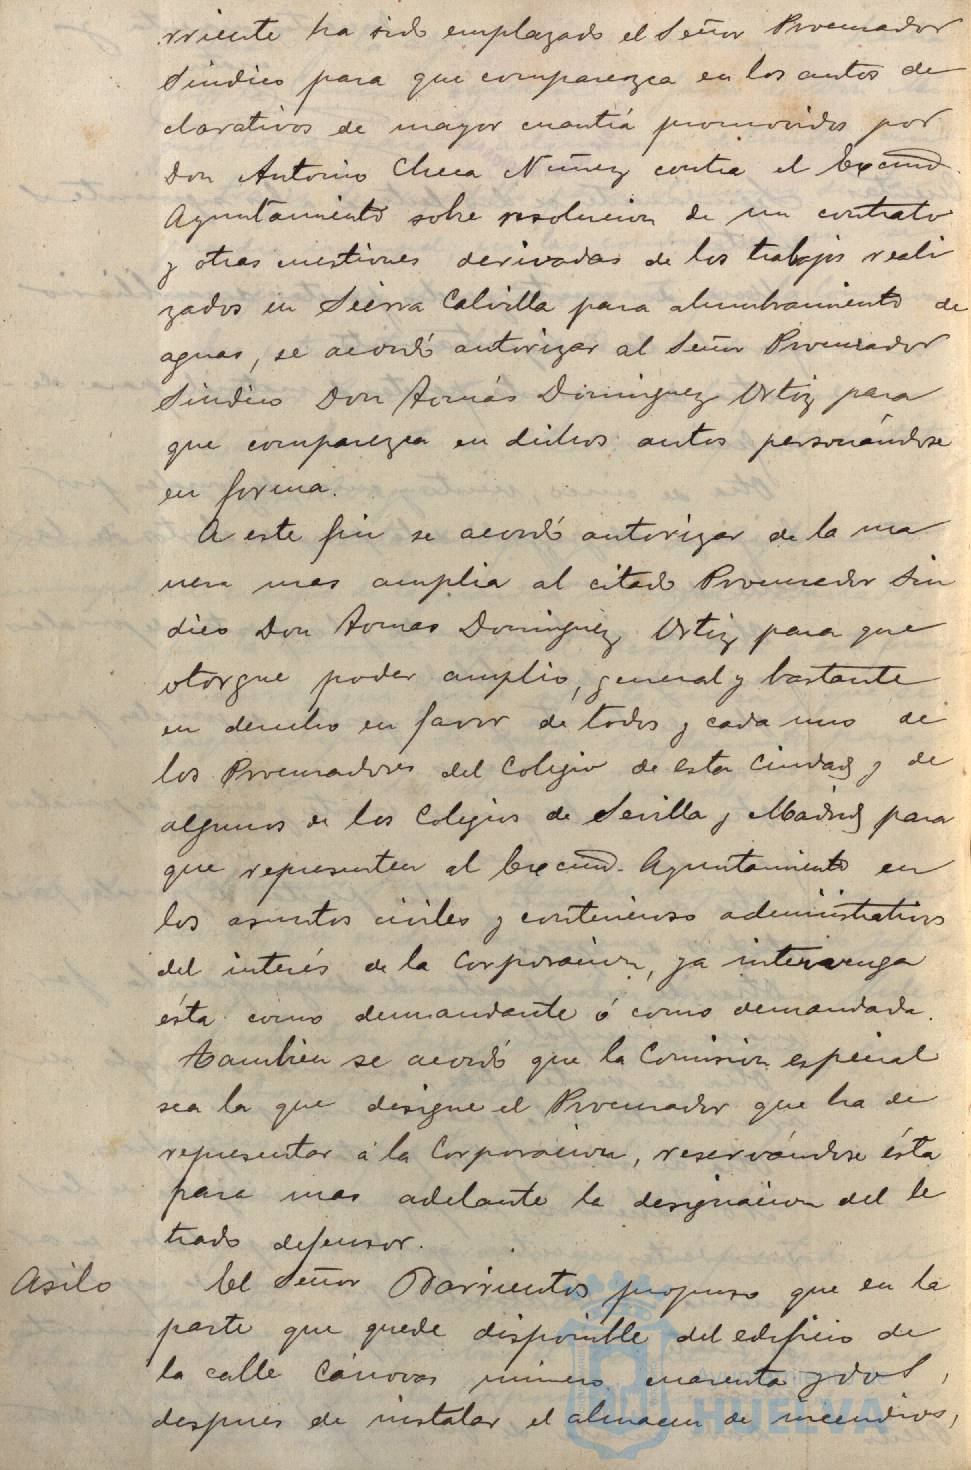 rriente ha sido emplazado el Señor Procurador
Síndico para que comparezca en los autos de
clarativos de mayor cuantía promovidos por
Don Antonio Checa Nuñez contra el Excmo.
Ayuntamiento sobre resolucion de un contrato
y otras cuestiones derivadas de los trabajos reali
zados en Sierra Calvilla para alumbramiento de
aguas, se acordó autorizar al Señor Procurador
Síndico Don Tomás Dominguez Ortiz para
que comparezca en dichos autos personándose
en forma.
A este fin se acordó autorizar de la ma
nera mas amplia al citado Procurador Sin
dico Don Tomas Dominguez Ortiz para que
otorgue poder amplio, general y bastante
en derecho en favor de todos y cada uno de
los Procuradores del Colegio de esta Ciudad y de
algunos de los Colegios de Sevilla y Madrid para
que representen al Excmo. Ayuntamiento en
los asuntos civiles y contencioso administrativos
del interés de la Corporacion, ya intervenga
ésta como demandante ó como demandada.
Tambien se acordó que la Comision especial
sea la que designe el Procurador que ha de
representar á la Corporacion, reservándose ésta
para mas adelante la designacion del le
trado defensor.
Asilo El Señor Barrientos propuso que en la
parte que quede disponible del edificio de
la calle Cánovas número cuarenta y dos,
despues de instalar el almacen de incendios,
HUELVA